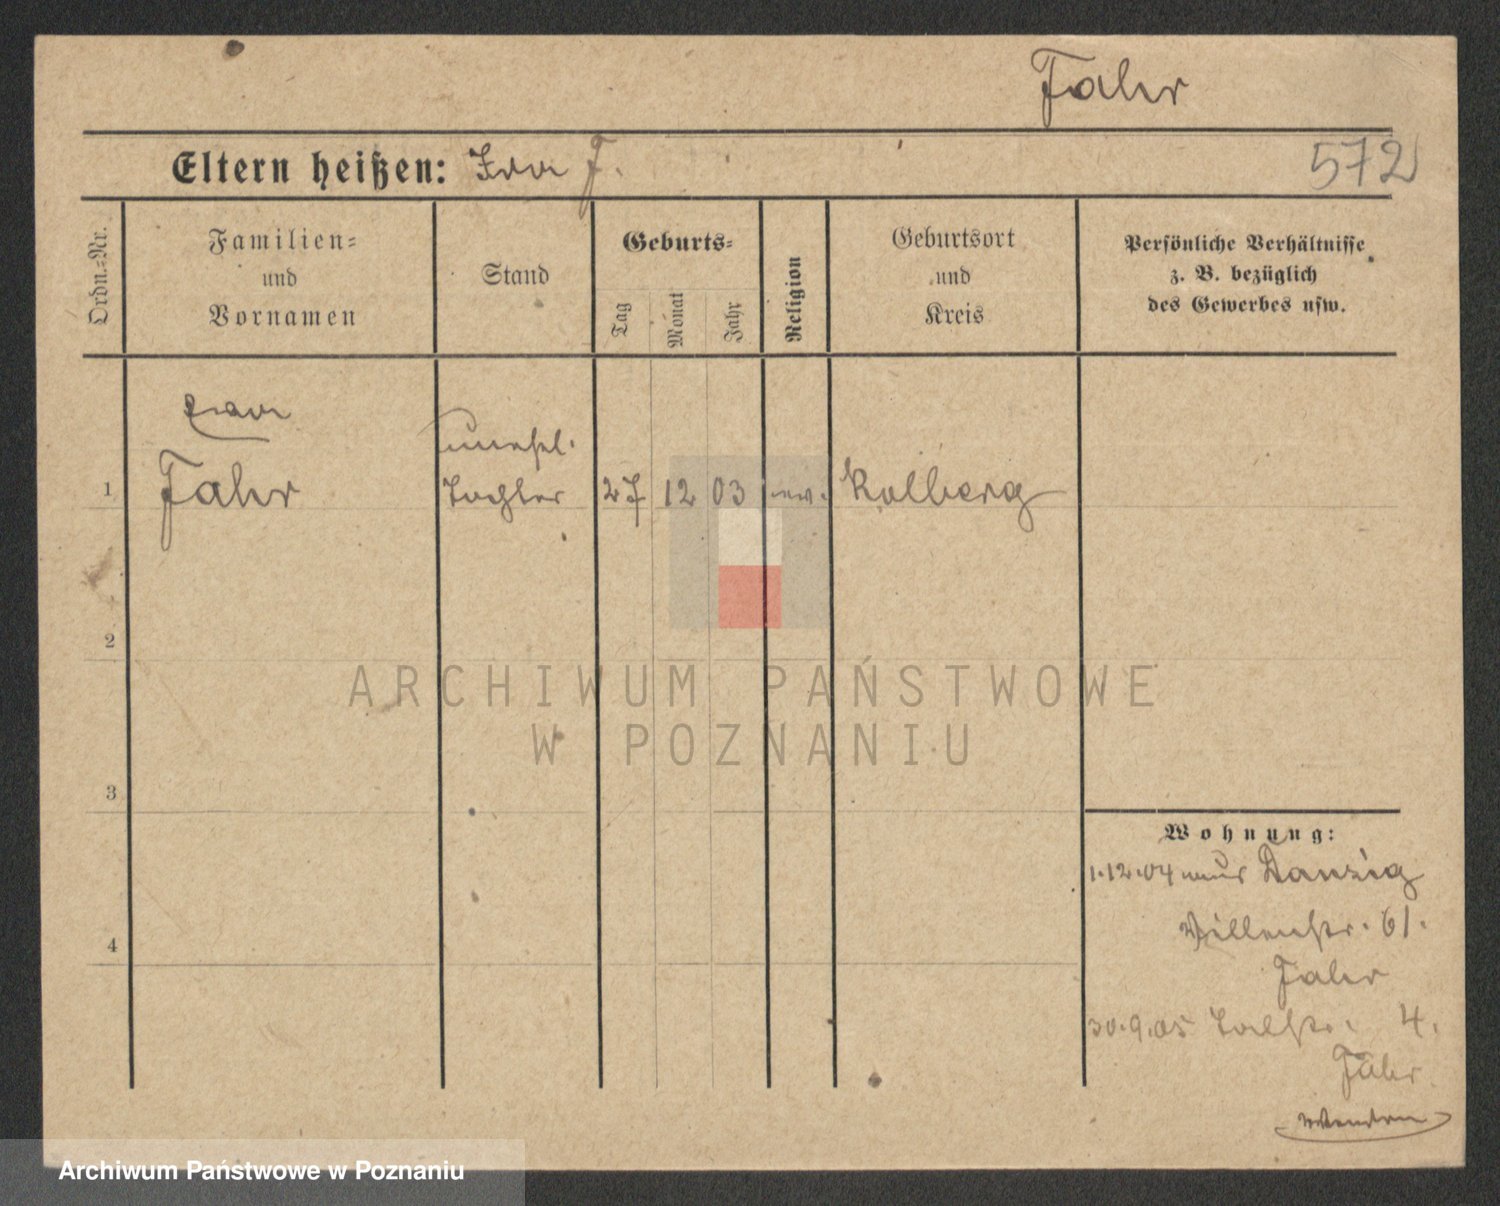 Fahr
Eltern heißen: F.
572
Ordn.-Nr.
Familien-
und
Vornamen
Stand
Geburts-
Tag
Monat
Jahr
Religion
Geburtsort
und
Kreis
Persönliche Verhältnisse
z. B. bezüglich
des Gewerbes usw.
1
Fahr
unehl.
Tochter
27
12
03
ev.
Kolberg
2
3
4
Wohnung:
1.12.04 Danzig
61.
Fahr
30.9.05 4.
Fahr
Wenden
ARCHIWUM PAŃSTWOWE
W POZNANIU
Archiwum Państwowe w Poznaniu